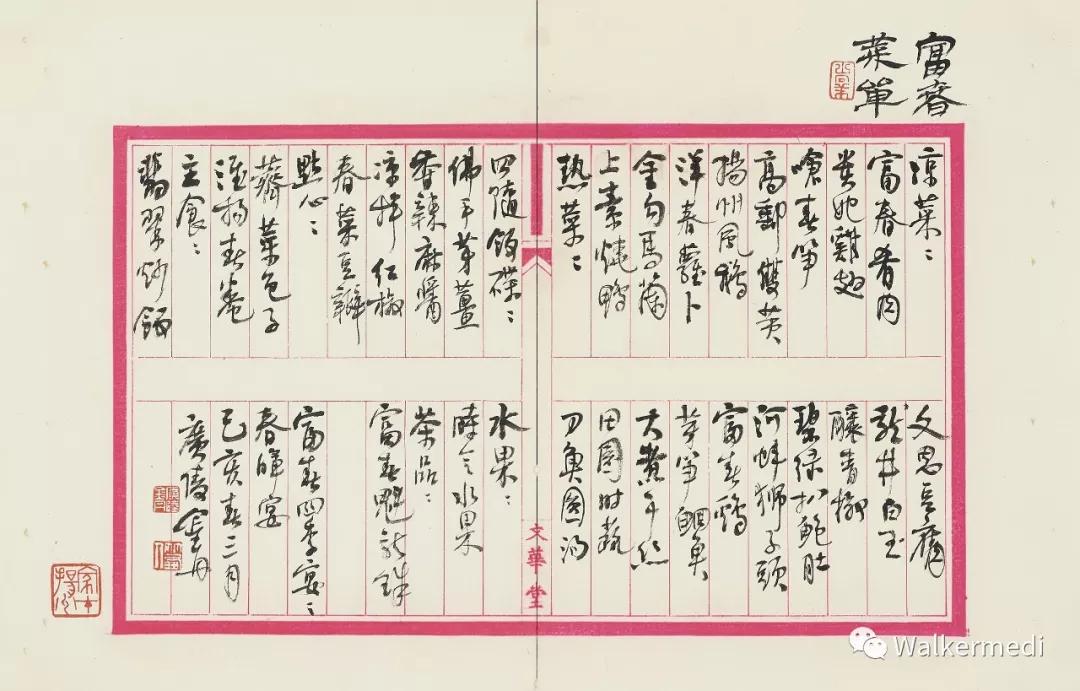 富春
菜單
涼菜：
富春肴肉
貴妃雞翅
嗆春筍
高郵雙黃
揚州風鵝
洋春蘿卜
金勾馬蘭
上素燒鴨
熱菜：
文思豆腐
龍井白玉
釀青椒
碧綠扒鮑肚
河蚌獅子頭
富春鴨
芽筍鮰魚
大煮干絲
田園時蔬
刀魚圓湯
四隨飯碟：
佛手芽薑
香辣麻醬
涼拌仁椒
春菜豆瓣
點心：
薺菜包子
淮揚春卷
主食：
翡翠炒飯
水果：
時令水果
茶品：
富春魁龍珠
富春四季宴：
春暉宴
己亥春三月
廣陵
文華堂
Walkermedi